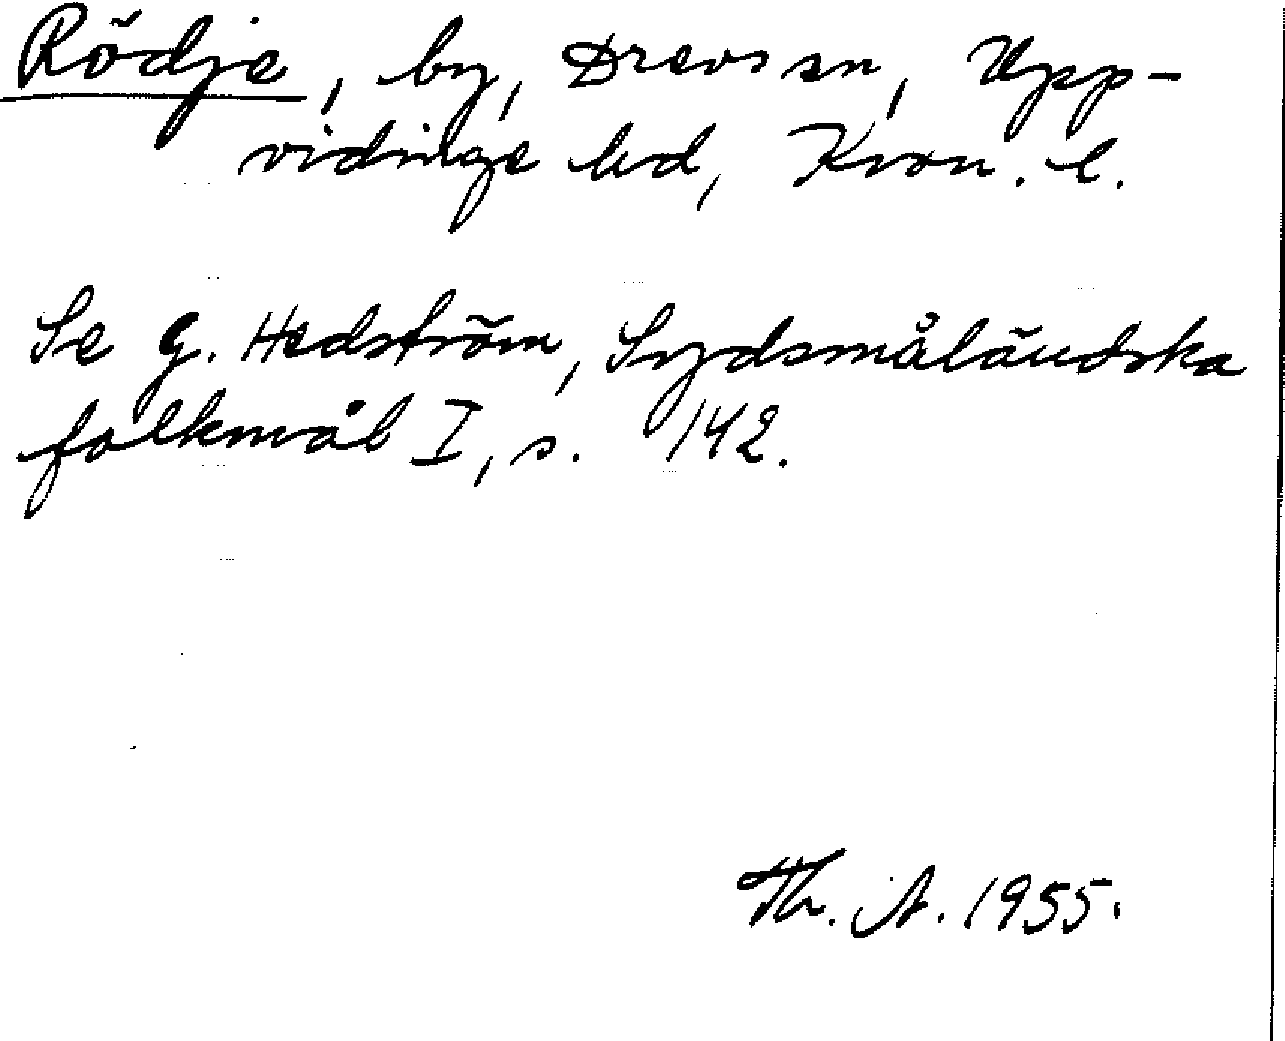 Rödje, by, Drevs sn, Upp-
vidinge hd, Kron. l.
Se G. Hedström, Sydsmåländska
folkmål I, s. 142.
Th. A. 1955.